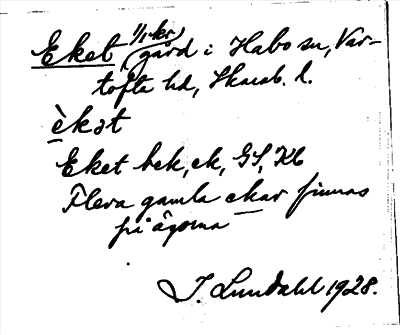 Eket 1/1 kr gård i Habo sn, Var-
tofta hd, Skarab. l.
èkət
Eket bek, ek, GS, Kb
Flera gamla ekar finnas
på ägorna
J. Lundahl 1928.